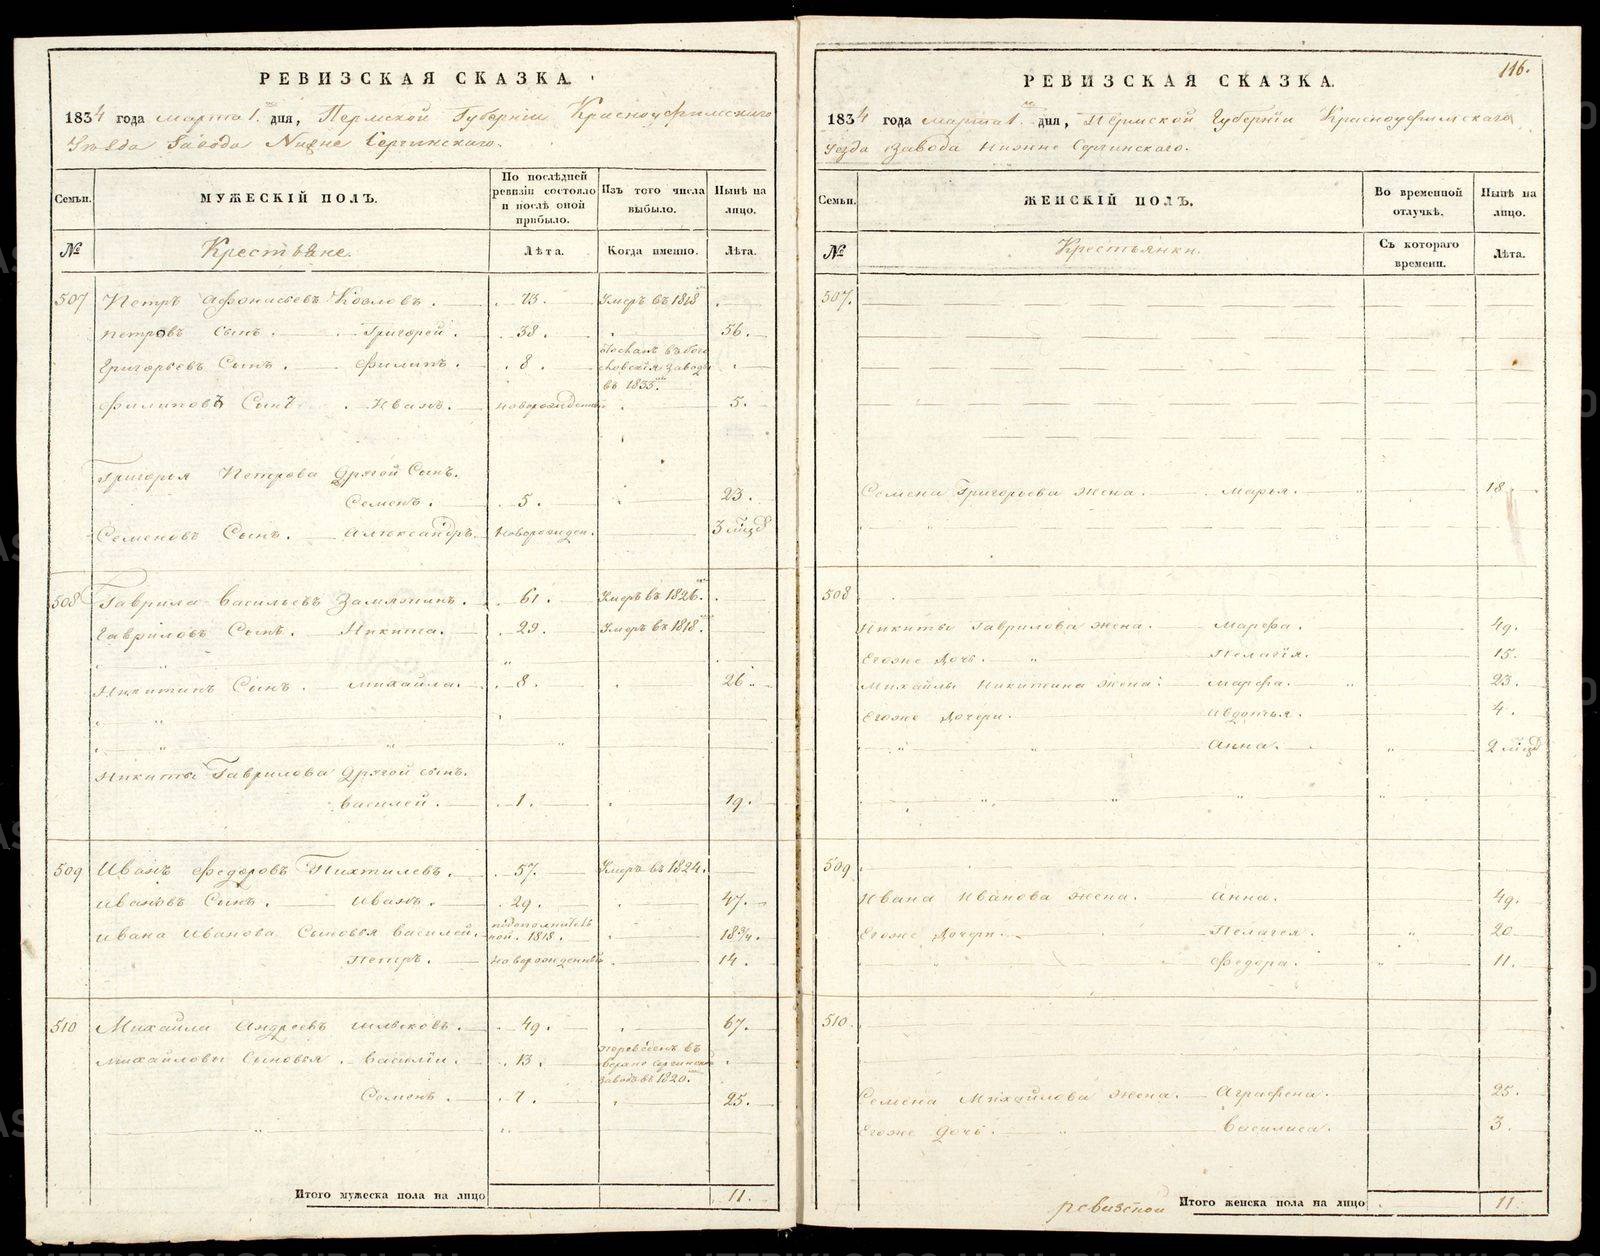 РЕВИЗСКАЯ СКАЗКА.
1834 года марта 1. дня, Пермской Губерніи Красноуфимскаго
Уезда Завода Нижне Сергинскаго.
Семьи.
МУЖЕСКІЙ ПОЛЪ.
По послѣдней ревизіи состояло и послѣ оной прибыло.
Изъ того числа выбыло.
Нынѣ на лицо.
№
Крестьяне.
Лѣта.
Когда именно.
Лѣта.
507 Петръ Афонасьевъ Козловъ. 73. Умеръ въ 1818
Петровъ Сынъ. Григорей. 38. 56.
Григорьевъ Сынъ. Филипъ. 8. заводъ въ 1833.
Филиповъ Сынъ Иванъ. новорожденный 5.
Григорья Петрова Другой Сынъ.
Семенъ. 5. 23.
Семеновъ Сынъ. Александръ. новорожден. 3
508 Гаврила Васильевъ Замятинъ. 61. Умеръ въ 1826.
Гавриловъ Сынъ. Никита. 29. Умеръ въ 1818.
Никитинъ Сынъ. Михайла. 8. 26.
Никиты Гаврилова Другой сынъ.
Василей. 1. 19.
509 Иванъ Федоровъ Пихтилевъ. 57. Умеръ въ 1824.
Ивановъ Сынъ. Иванъ. 29. 47.
Ивана Иванова Сыновья Василей. 1818. 18 3/4.
Петръ. новорожденный 14.
510 Михайла Андреевъ 49. 67.
Михайловы Сыновья. Василіи. 13. переведенъ въ Верхне Сергинской заводъ въ 1820.
Семенъ. 7. 25.
Итого мужеска пола на лицо 11.
116.
РЕВИЗСКАЯ СКАЗКА.
1834 года марта 1 дня, Пермской Губерніи Красноуфимскаго
Уезда Завода Нижне Сергинскаго.
Семьи.
ЖЕНСКІЙ ПОЛЪ.
Во временной отлучкѣ.
Нынѣ на лицо.
№
Крестьянки.
Съ котораго времени.
Лѣта.
507.
Семена Григорьева жена. Марья. 18
508
Никиты Гаврилова жена. Марфа. 49.
Егоже Дочь. Пелагія. 15.
Михайлы Никитина жена. Марфа. 23.
Егоже Дочери. Авдотья. 4.
Анна. 2
509
Ивана Иванова жена. Анна. 49.
Егоже Дочери. Пелагея. 20
Федора. 11.
510.
Семена Михайлова жена. Аграфена. 25.
Егоже Дочь. Василиса. 3.
ревизской Итого женска пола на лицо 11.